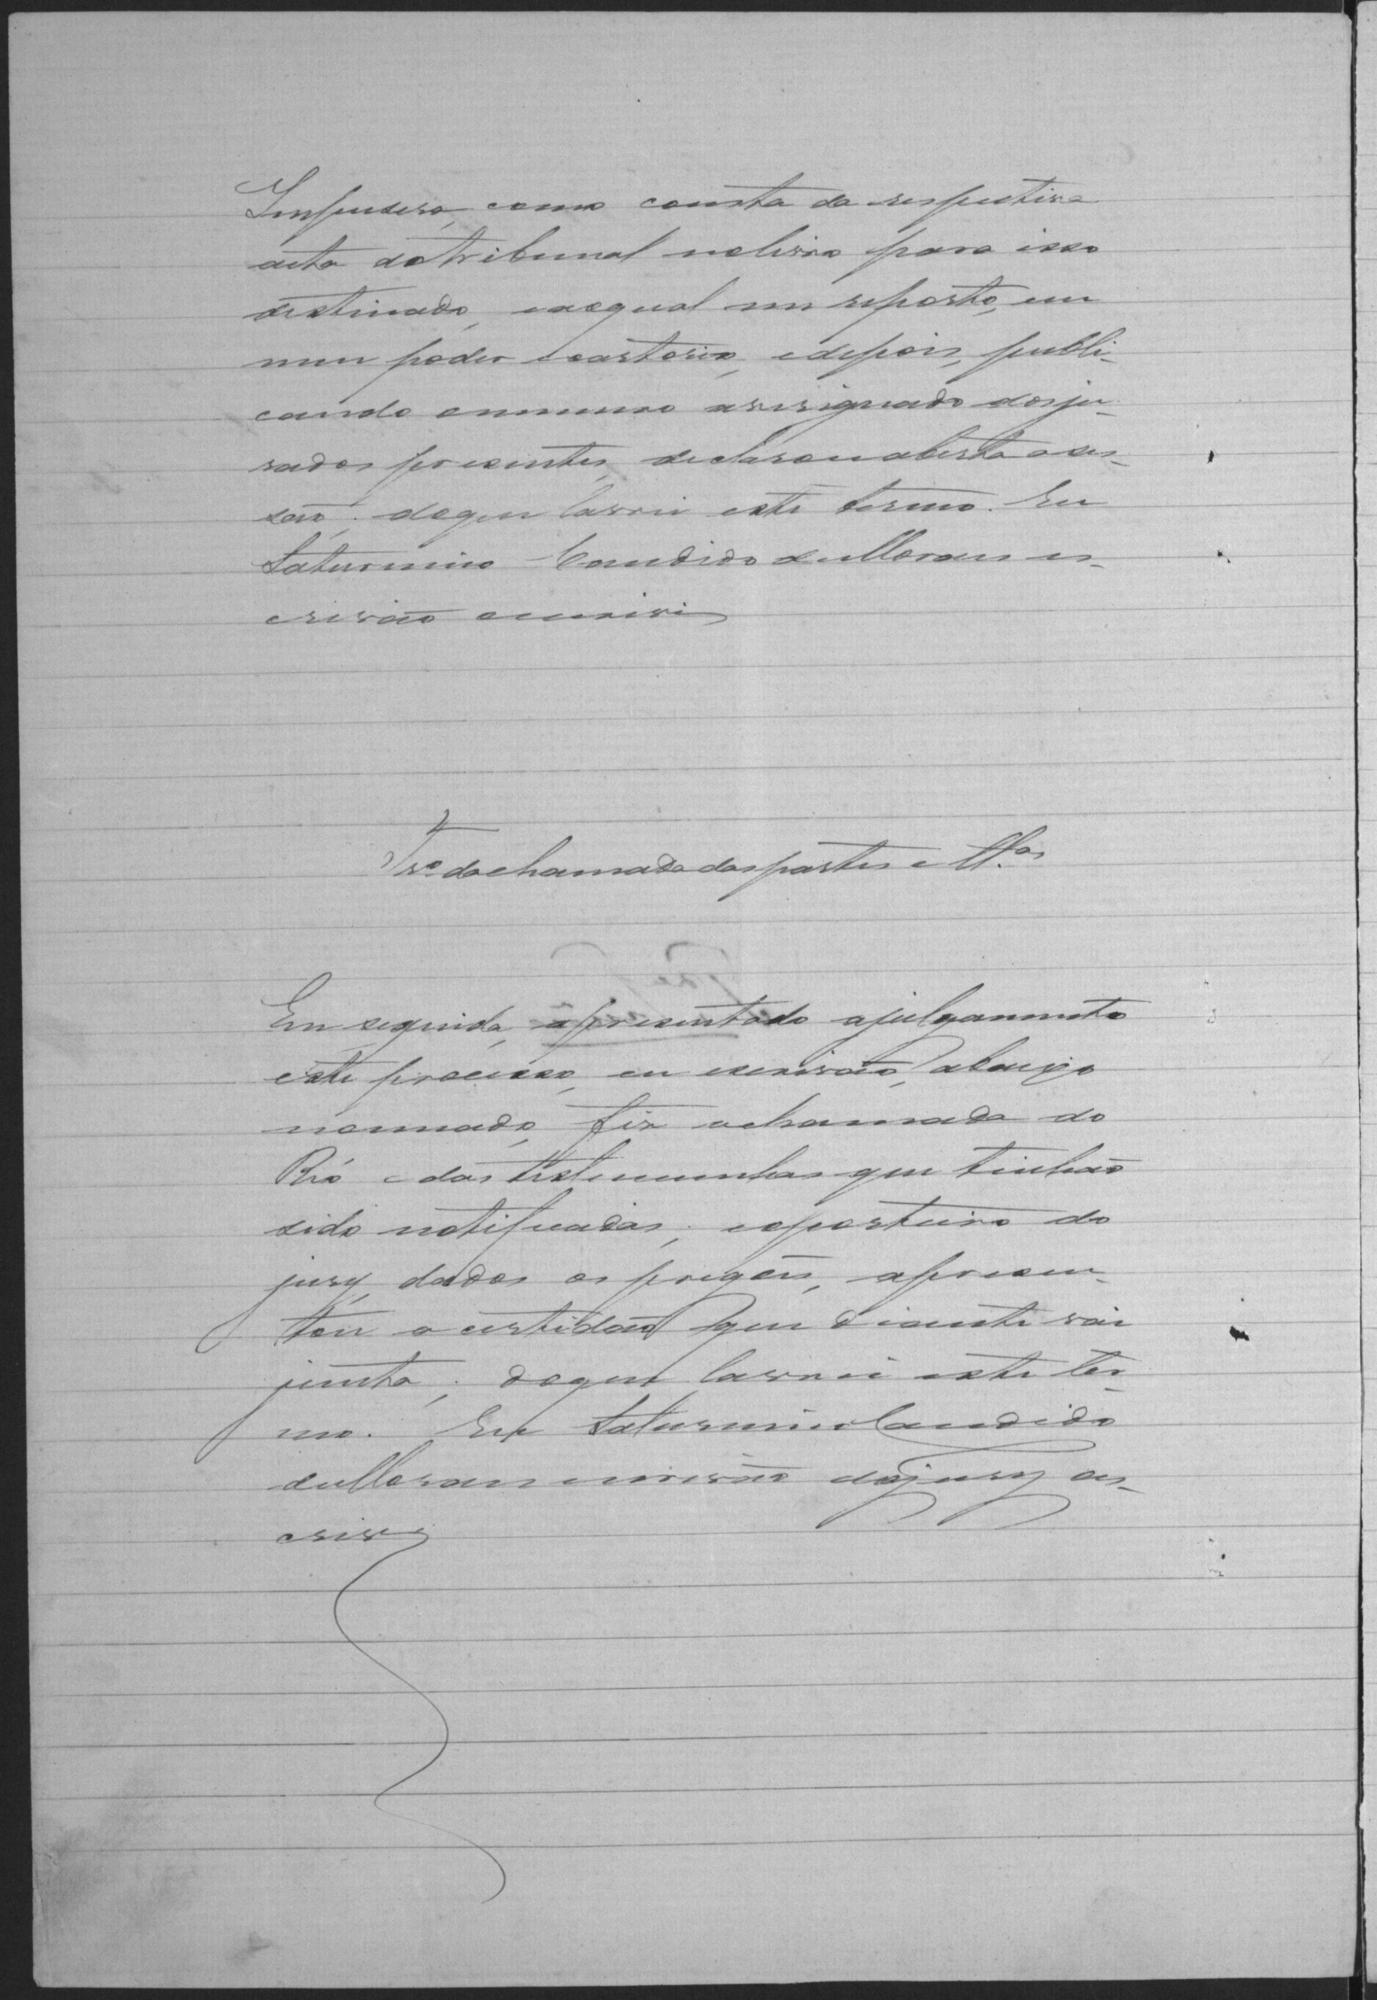 Impusera, como consta da respectiva
acta do tribunal no livro para isso
destinado, ao qual me reporto, em
meu poder e cartorio, e depois, publi-
cando o numero assignado dos ju-
rados presentes, declarou aberta a ses-
são; do que lavrei este termo. Eu
Saturnino Candido de Moraes es-
crivão o escrivi
Tr.º da chamada das partes e tt.as
Em seguida, apresentado a julgamento
este processo, eu escrivão, abaixo
nomeado, fiz a chamada do
Réo e das testemunhas que tinhão
sido notificadas; e o porteiro do
jury, dados os pregões, apresen-
tou a certidão que diante vai
junta; do que lavrei este ter-
mo. Eu Saturnino Candido
de Moraes escrivão do jury o es-
crivi